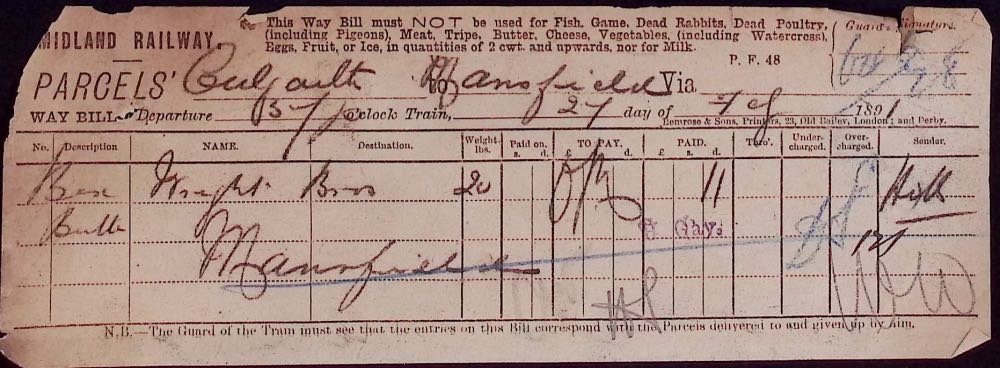 This Way Bill must NOT be used for Fish, Game, Dead Rabbits, Dead Poultry,
(including Pigeons), Meat, Tripe, Butter, Cheese, Vegetables, (including Watercress),
Eggs, Fruit, or Ice, in quantities of 2 cwt. and upwards, nor for Milk.
Guard's Signature.
MIDLAND RAILWAY.
P. F. 48
PARCELS' Culgaith to Mansfield Via
WAY BILL—Departure 57 o'clock Train, 27 day of 1891
Bemrose & Sons, Printers, 23, Old Bailey, London; and Derby.
No. Description NAME. Destination. Weight lbs. Paid on. s. d. £ TO PAY. s. d. £ PAID. s. d. Thro'. Under-charged. Over-charged. Sender.
Box Wright Bros 20 11 Hill
Butter
Mansfield
N.B.—The Guard of the Train must see that the entries on this Bill correspond with the Parcels delivered to and given up by him.